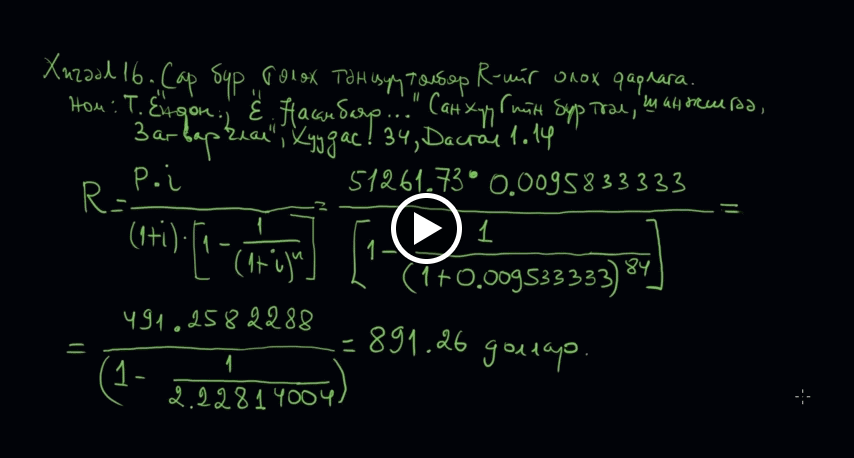 Хичээл 16. Сар бүр төлөх тэнцүү төлбөр R-ийг олох дадлага.
Ном: Т. Ёндон., Ё. Насанбаяр... "Санхүүгийн бүртгэл, шинжилгээ,
Загварчлал", Хуудас: 34, Дасгал 1.14
R = P·i / (1+i)·[1 - 1/(1+i)ⁿ] = 51261.73 • 0.0095833333 / [1 - 1/(1+0.009533333)⁸⁴] =
= 491.2582288 / (1 - 1/2.22814004) = 891.26 доллар.